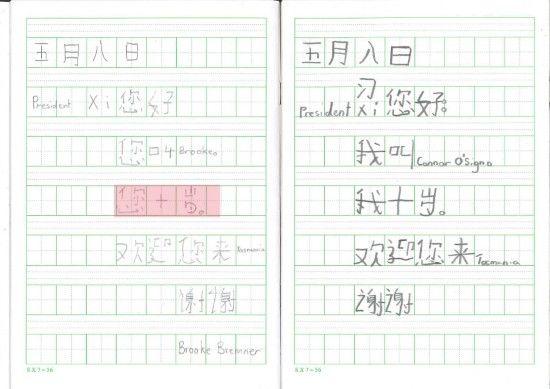 五月八日
President Xi 您好
您叫 Brooke。
您十岁。
欢迎您来 Tasmania
谢谢
Brooke Bremner
EX7-56
五月八日
习
President Xi 您好。
我叫 Connor O'Signo
我十岁。
欢迎您来 Tasmania
谢谢